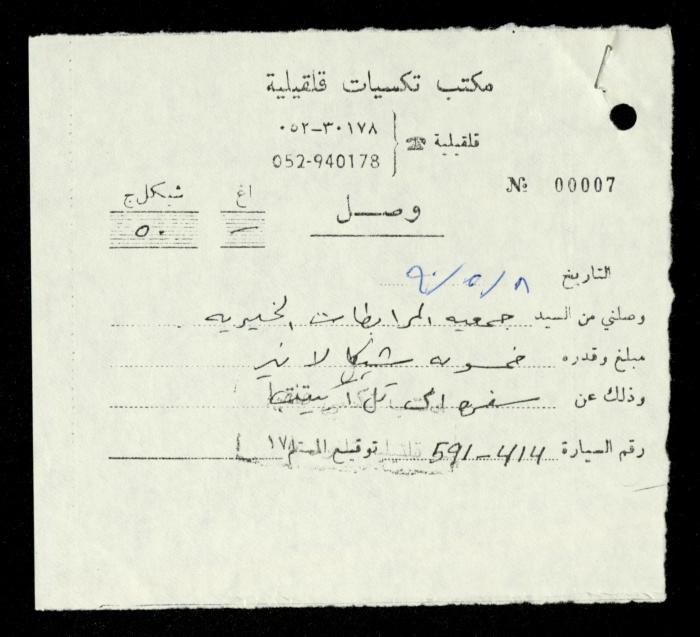 مكتب تكسيات قلقيلية
قلقيلية ☎ ٠٥٢-٣٠١٧٨
052-940178
№ 00007
اغ شيكل ج
— ٥٠
وصل
التاريخ ٨/٥/٩٠
وصلني من السيد جمعيه المرابطات الخيريه
مبلغ وقدره خمسونه شيكلا لا غير
وذلك عن سفره الى تل
رقم السيارة 591-414 توقيع المستلم ١٧٨